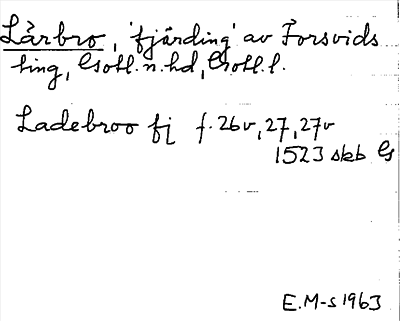 Lärbro, 'fjärding' av Forsvids
ting, Gotl.n.hd, Gotl.l.
Ladebroo fj f. 26v, 27, 27v
1523 skb G
E.M-s 1963